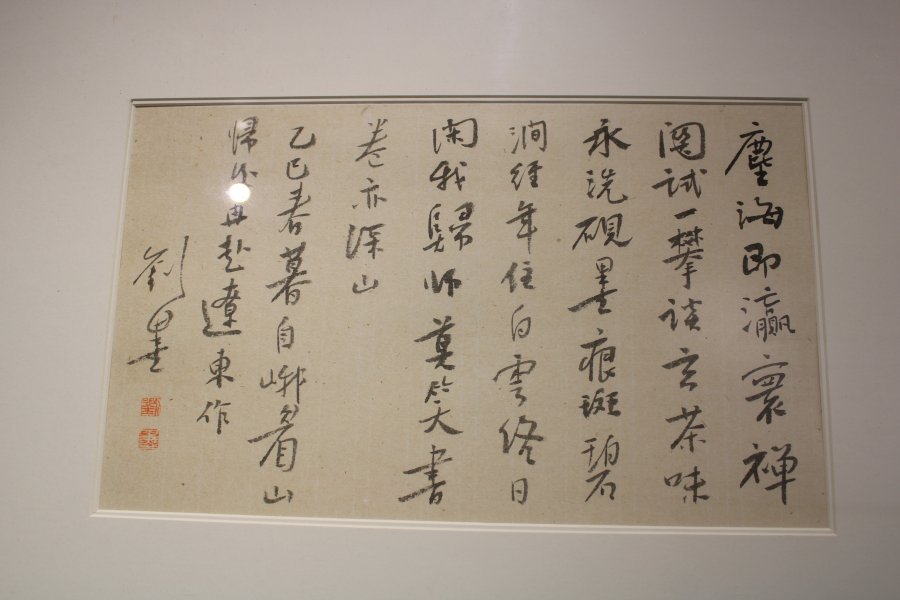 塵海即瀛寰禅
関試一攀談玄茶味
永洗硯墨痕斑碧
澗经年住白雲终日
閑我歸师莫笑書
卷亦深山
乙巳春暮自峨眉山
帰后再赴遼東作
劉墨